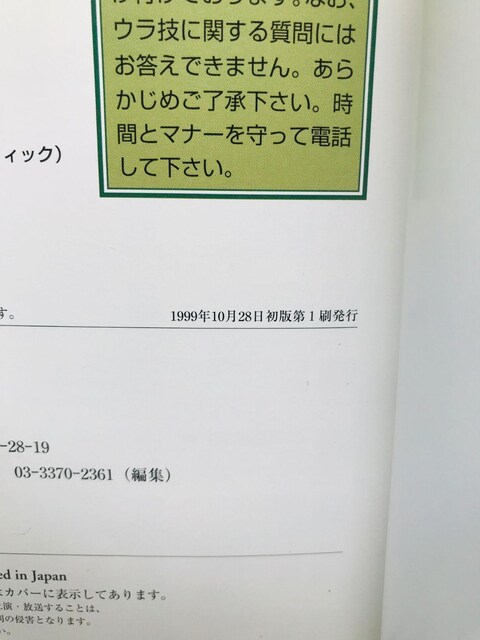 が付けております。なお、
ウラ技に関する質問には
お答えできません。あら
かじめご了承下さい。時
間とマナーを守って電話
して下さい。
ィック）
す。
1999年10月28日初版第1刷発行
-28-19
03-3370-2361（編集）
ed in Japan
カバーに表示してあります。
上演・放送することは、
の侵害となります。
い。